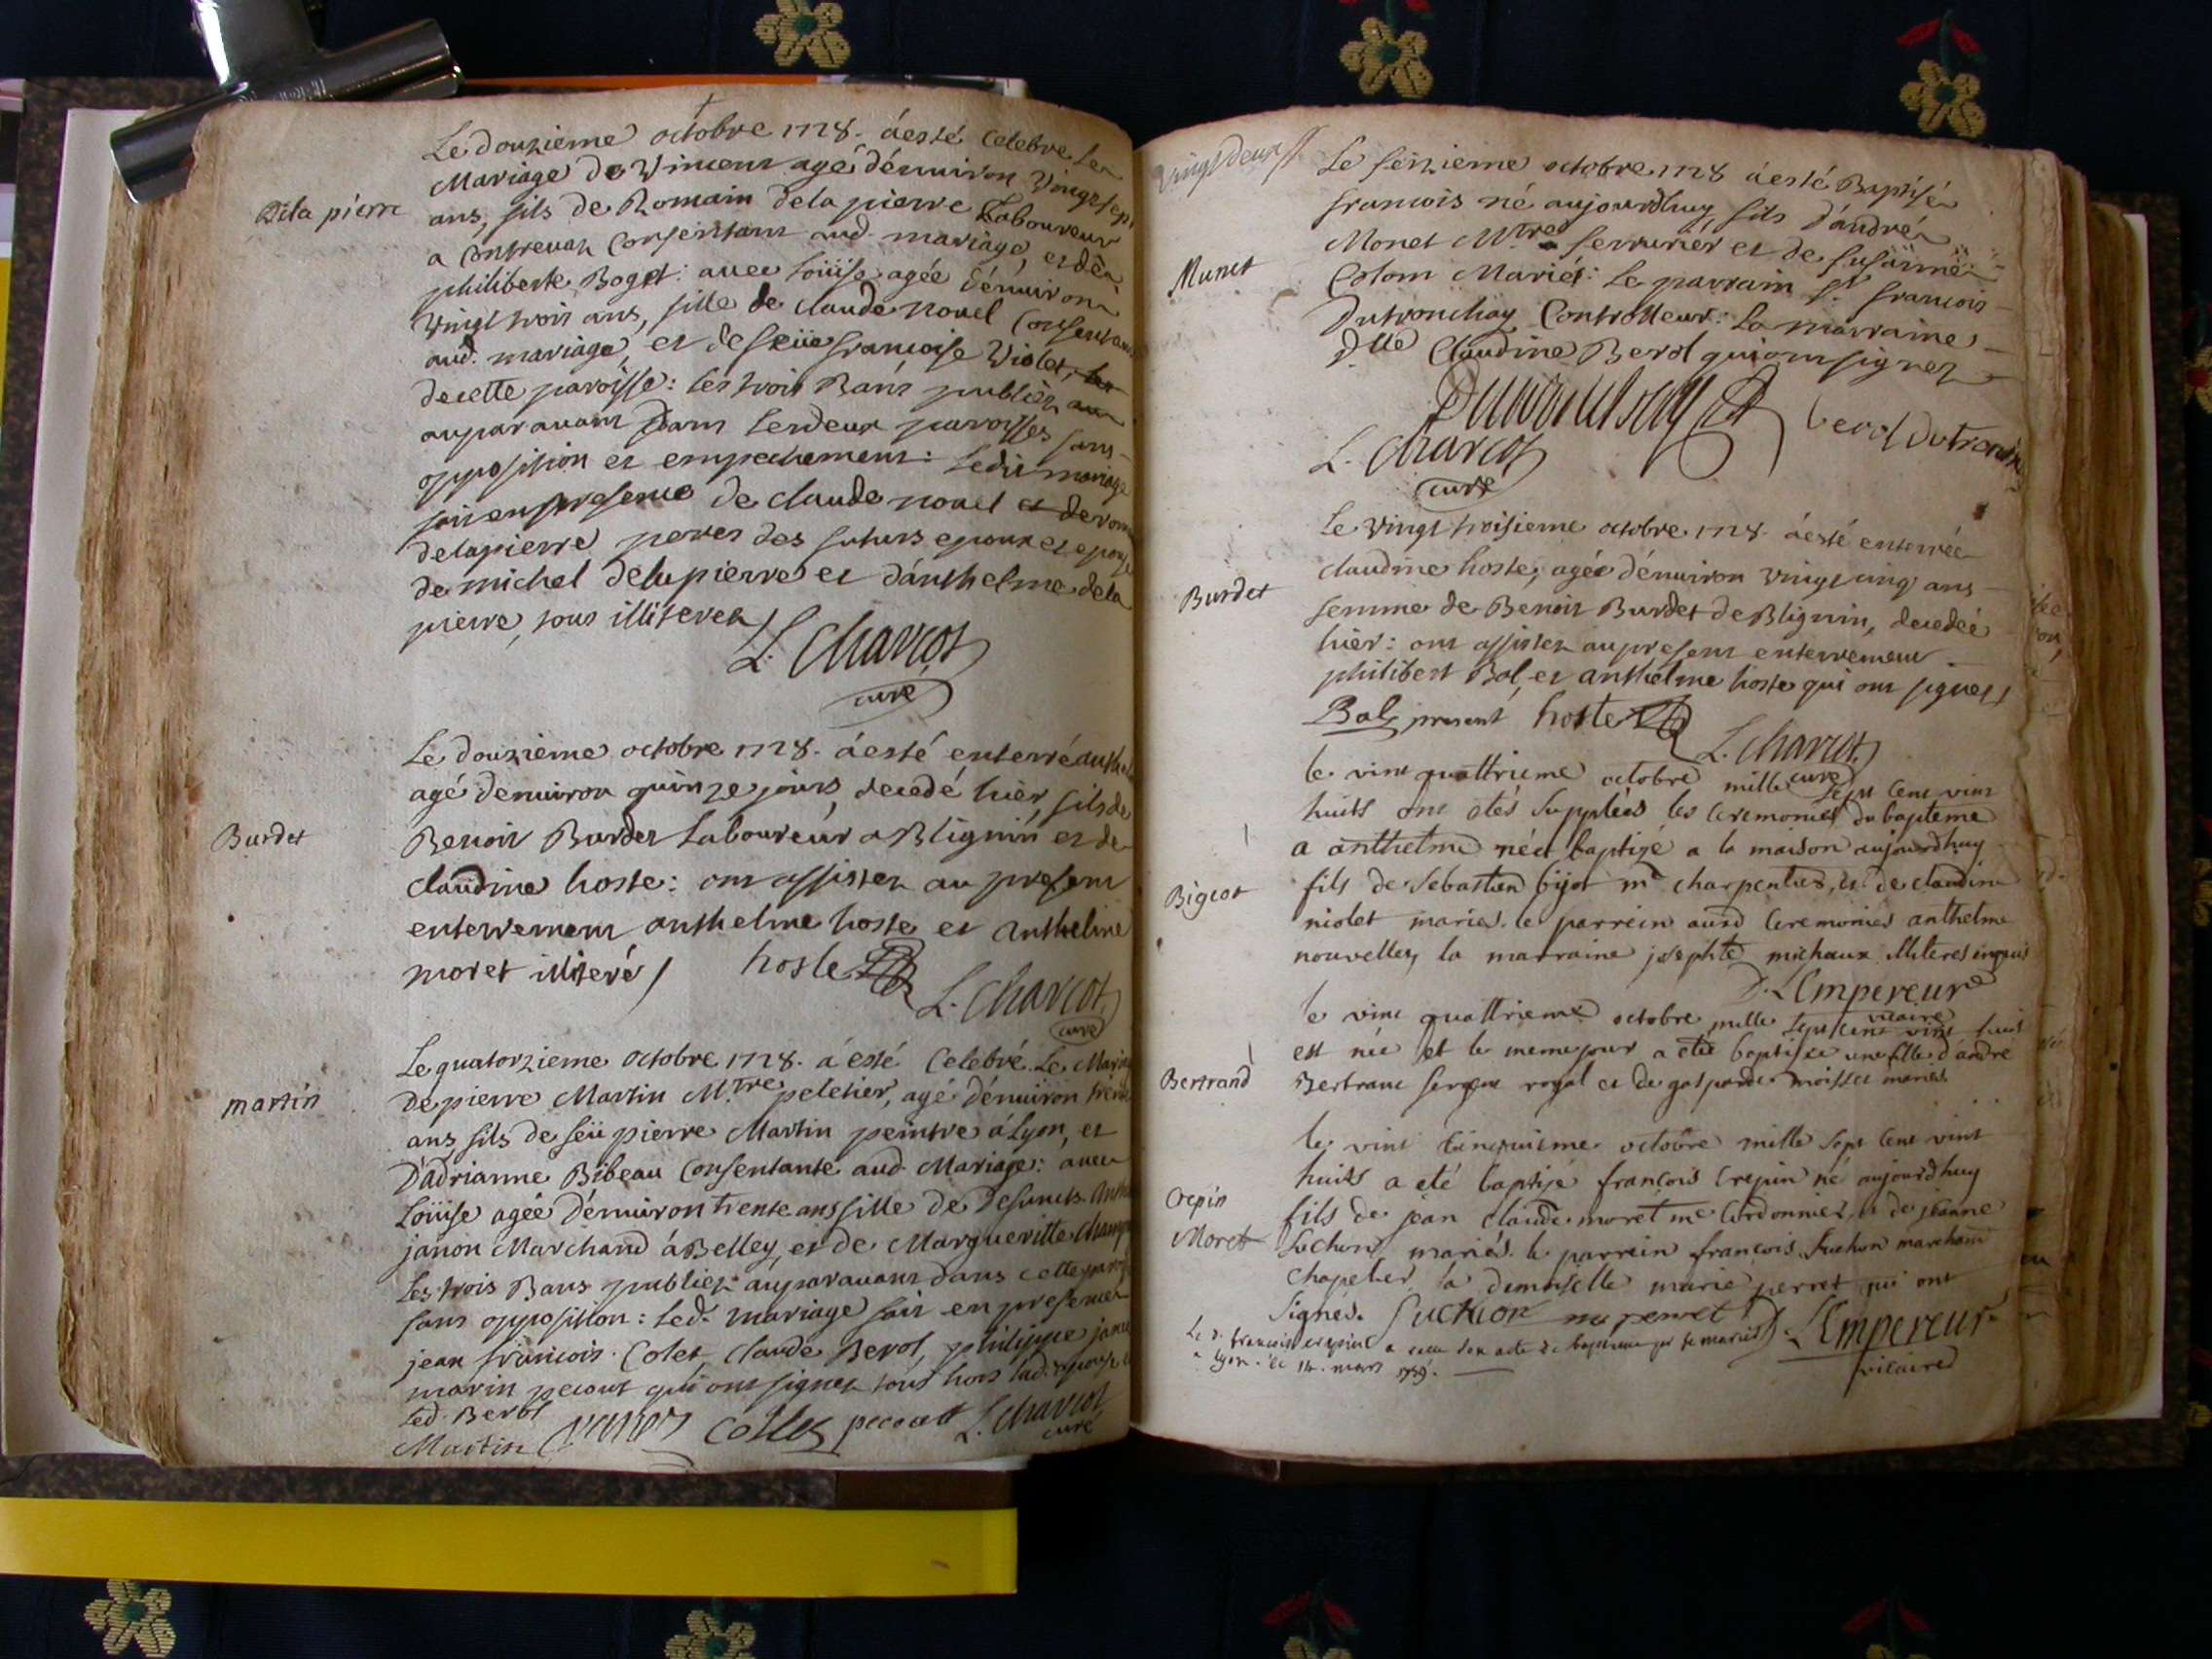 Le douzieme octobre 1728. á esté Celebre Le
Mariage de Vincent agé d'énuiron Vingt sept
De la pierre
ans, fils de Romain dela pierre Laboureur
a Contrevoz Consentant aud. mariage, et dé
philiberte Boget: auec Loüise agée d'énuiron
Vingt trois ans, fille de claude nouel Consentant
aud. mariage, et de feüe francoise Violet,
decette paroisse: les trois Bans publiez
auparauant dans lesdeux paroisses sans
opposition et empechement: Ledit mariage
fait en presence de claude nouel et de romain
delapierre peres des futurs epoux et epouse
de michel delapierre et d'anthelme dela
pierre, tous illiterez
L. Charcot
curé
Le douzieme octobre 1728. á esté enterré anthelme
agé d'enuiron quinze jours, decedé hier, fils de
Burdet
Benoit Burdet Laboureur a Blignin et de
claudine hoste: ont assistez au present
enterrement anthelme hoste et anthelme
moret illiteré
hoste
L. Charcot
curé
Le quatorzieme octobre 1728. á esté Celebré Le Mariage
martin
De pierre Martin M.tre peletier, agé d'énuiron trente
ans, fils de feü pierre Martin peintre á Lyon, et
D'adrianne Bibeau Consentante aud. Mariage: auec
Loüise agée d'énuiron trente ans fille de Defuncts
janon Marchand á Belley, et de Margueritte
Les trois Bans publiez auparauant dans cette paroisse
sans opposition: led. mariage fait en presence
jean francois Colet, claude Berot, philippe janon
marin pecout qui ont signez tous hors lad. epouse
Led. Berot
Martin janon Collet pecoutt L. Charcot
curé
Vingt deux
Le seizieme octobre 1728 á esté Baptisé
francois né aujourdhuy, fils d'andré
Monet M.tre serrurier et de susanne
Munet
Colom Mariés: Le parrain S.r francois
Dutronchay Controlleur: La marraine
D.lle Claudine Berol qui ont signez
Dutronchay
L. Charcot
curé
Le Vingt troisieme octobre 1728. á esté enterrée
claudine hoste, agée d'énuiron Vingt cinq ans
Burdet
femme de Benoit Burdet de Blignin, decedée
hier: ont assistez au present enterrement
philibert Bal, et anthelme hoste qui ont signez
Bal present hoste
L. Charcot
curé
le vint quattrieme octobre mille sept cent vint
huits ont etés suppléés les ceremonies du bapteme
a anthelme né et baptizé a la maison aujourdhuy
Bigeot
fils de Sebastien bijot m.e charpentier, et de claudine
niolet mariés. le parrein ausd ceremonies anthelme
nouvelles, la marraine josephte michaux illiteres
D. LEmpereur
vicaire
le vint quattrieme octobre mille sept cent vint huit
est née et le meme jour a eté baptisée une fille d'andré
Bertrand
Bertrant sergent royal et de gasparde moisset mariés.
le vint cinquieme octobre mille sept cent vint
huits a eté baptisé françois Crepin né aujourdhuy
Crepin
Moret
fils de jean claude moret me Cordonnier, et de jeanne
Suchon mariés. le parrein françois Suchon marchand
chapelier, la demoiselle marie perret qui ont
signés. Suchon m perret D. LEmpereur
vicaire
Le d. francois crepin a
a Lyon. le 14. mars 1759.